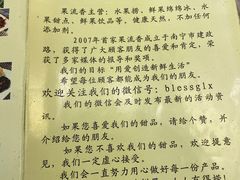 果流香主营：水果捞、鲜果绵绵冰、水
果甜点、鲜果饮品等、健康天然，不加任何
添加剂。
2007年首家果流香成立于南宁市建
政路，获得了广大顾客朋友的喜爱和肯定，荣
获了多家媒体的报导和奖项。
我们的目标“用爱创造新鲜生活”
希望每位顾客都能成为我们的朋友。
欢迎关注我们的微信号：blessglx
我们的微信会及时发布最新的活动资
讯。
如果您喜爱我们的甜品，请给个赞，并
介绍给您的朋友。
如果您不喜欢我们的甜品，欢迎提意
见，我们一定虚心接受。
我们会一直努力用心做好每一份产品。